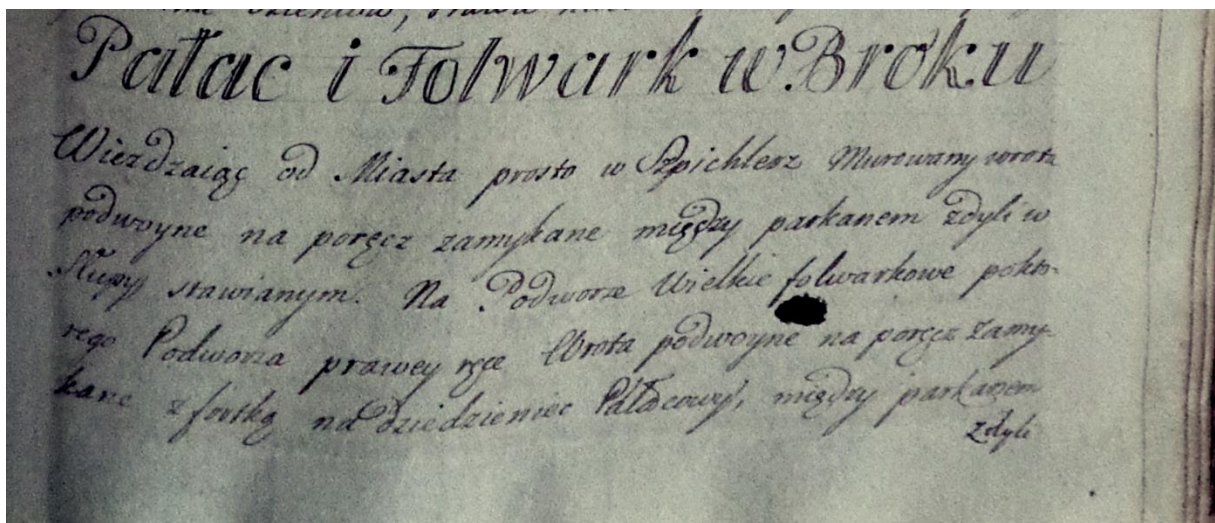 Pałac i Folwark w Broku
Wiezdzaiąc od Miasta prosto w Szpichlerz Murowany wrota
podwoyne na poręcz zamykane między parkanem zdyli w
Słupy stawianym. Na Podworze Wielkie folwarkowe pokto-
rego Podworza prawey ręce Wrota podwoyne na poręcz zamy-
kane z fortką na dziedzieniec Pałacowy, między parkanem
zdyli